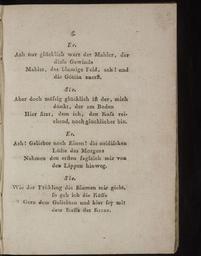 6.
Er.
Ach nur glücklich ware der Mahler, der
diese Gewinde
Mahler, das blumige Feld, ach! und
die Göttin zuerst.
Sie.
Aber doch mässig glücklich ist der, mich
dünkt, der am Boden
Hier sitzt, dem ich, den Kuss rei-
chend, noch glücklicher bin.
Er.
Ach! Geliebte noch Einen! die neidischen
Lüfte des Morgens
Nahmen den ersten sogleich mir von
den Lippen hinweg.
Sie.
Wie der Frühling die Blumen mir giebt,
so geb ich die Küsse
Gern dem Geliebten und hier sey mit
dem Kusse der Kranz.